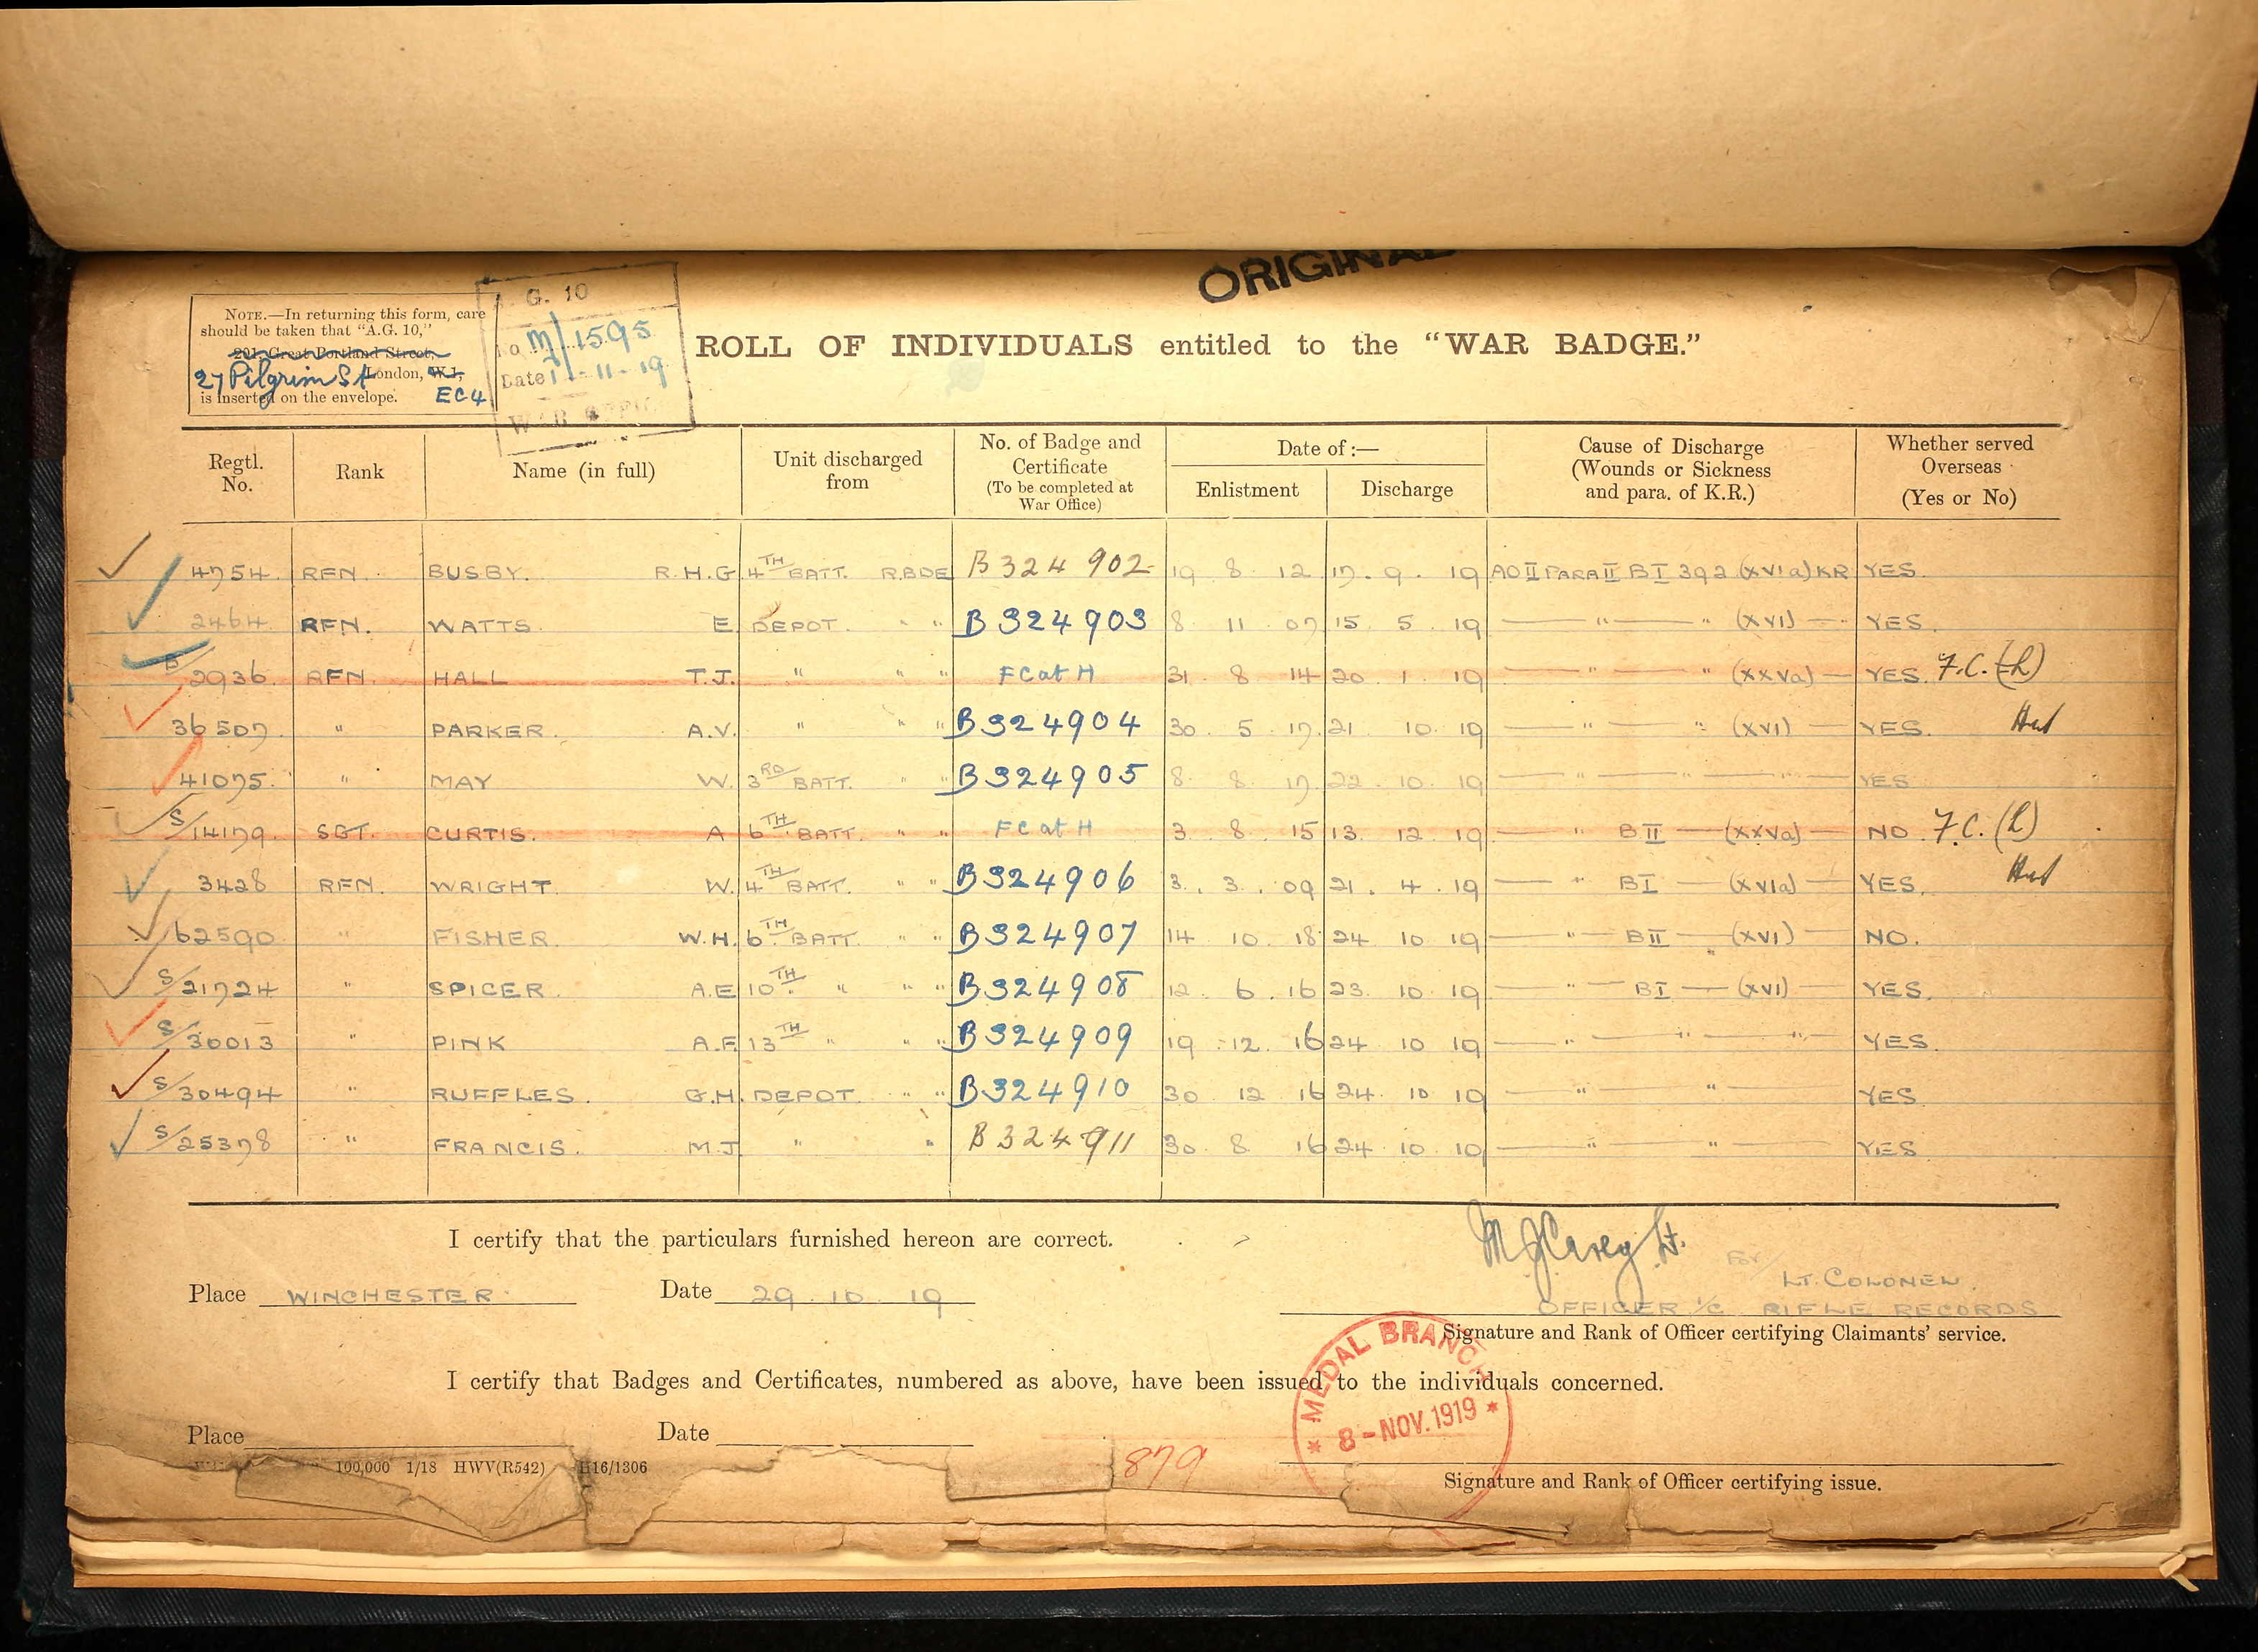 ORIGINAL
NOTE.—In returning this form, care
should be taken that "A.G. 10,"
201, Great Portland Street,
27 Pilgrim St London, W.1,
is inserted on the envelope. EC4
A. G. 10
No M/1595
Date 1-11-19
WAR OFFICE
ROLL OF INDIVIDUALS entitled to the "WAR BADGE."
Regtl. No. Rank Name (in full) Unit discharged from No. of Badge and Certificate (To be completed at War Office) Date of :— Enlistment Discharge Cause of Discharge (Wounds or Sickness and para. of K.R.) Whether served Overseas (Yes or No)
4754 RFN. BUSBY. R.H.G. 4TH BATT. R.BDE B324902 19 8 12 17. 9. 19 AO II PARA II B I 392 (XVIa) KR YES
2464 RFN. WATTS. E. DEPOT. " " B324903 8 11 07 15. 5. 19 " " (XVI) YES.
2936 RFN. HALL T.J. " " " FC at H 31 8 14 20 1 19 " " (XXVa) YES. F.C. (h)
36507 " PARKER. A.V. " " " B324904 30. 5. 17 21 10. 19 " " (XVI) YES.
41075. " MAY W. 3RD BATT. " " B324905 8 8 17 22. 10. 19 " " " YES
S/14179. SGT. CURTIS. A 6TH BATT. " " FC at H 3 8 15 13. 12 19 " B II (XXVa) NO F.C. (h)
3428 RFN. WRIGHT. W. 4TH BATT. " " B324906 3. 3. 09 21. 4. 19 " B I (XVIa) YES.
62590 " FISHER. W.H. 6TH BATT. " " B324907 14 10. 18 24 10 19 " B II (XVI) NO.
S/21724 " SPICER. A.E 10TH " " " B324908 12. 6. 16 23 10. 19 " B I (XVI) YES.
S/30013 " PINK A.F. 13TH " " " B324909 19 12. 16 24 10 19 " " " YES.
S/30494 " RUFFLES. G.H. DEPOT. " " B324910 30 12 16 24. 10 19 " " YES
S/25378 " FRANCIS. M.J. " " B324911 30. 8 16 24 10. 19 " " YES
I certify that the particulars furnished hereon are correct.
M J Carey Lt.
For/ LT. COLONEL.
Place WINCHESTER. Date 29. 10 19
OFFICER I/C RIFLE RECORDS
Signature and Rank of Officer certifying Claimants' service.
I certify that Badges and Certificates, numbered as above, have been issued to the individuals concerned.
MEDAL BRANCH
8-NOV.1919
Place Date
100,000 1/18 HWV(R542) H16/1306
879
Signature and Rank of Officer certifying issue.